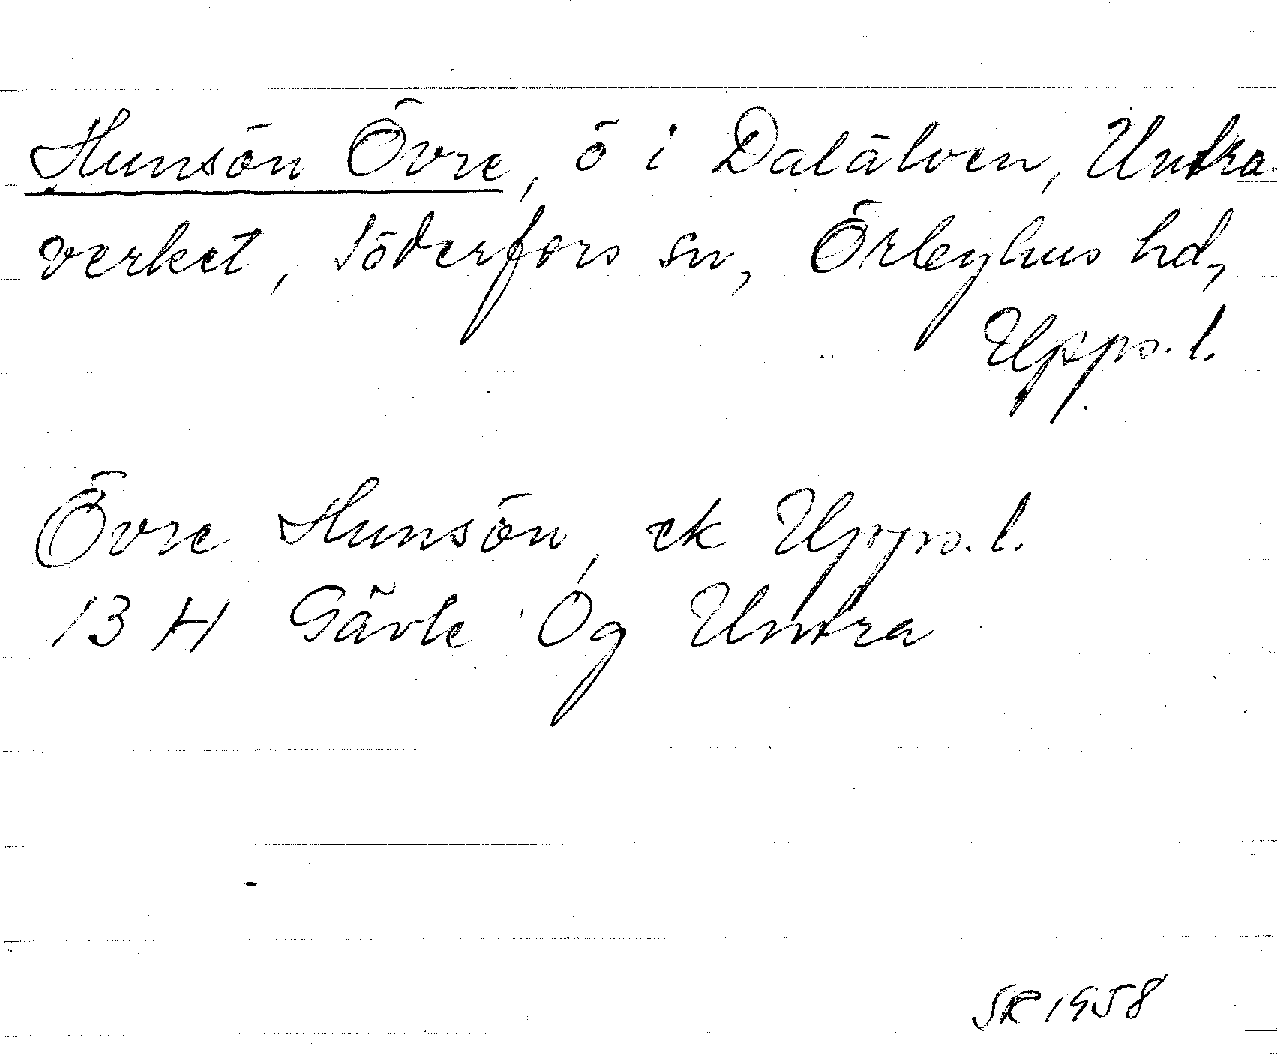 Hunsön Övre, ö i Dalälven, Untra
verket, Söderfors sn, Örbyhus hd,
Upps. l.
Övre Hunsön, ek Upps. l.
13 H Gävle Ög Untra
SR 1958